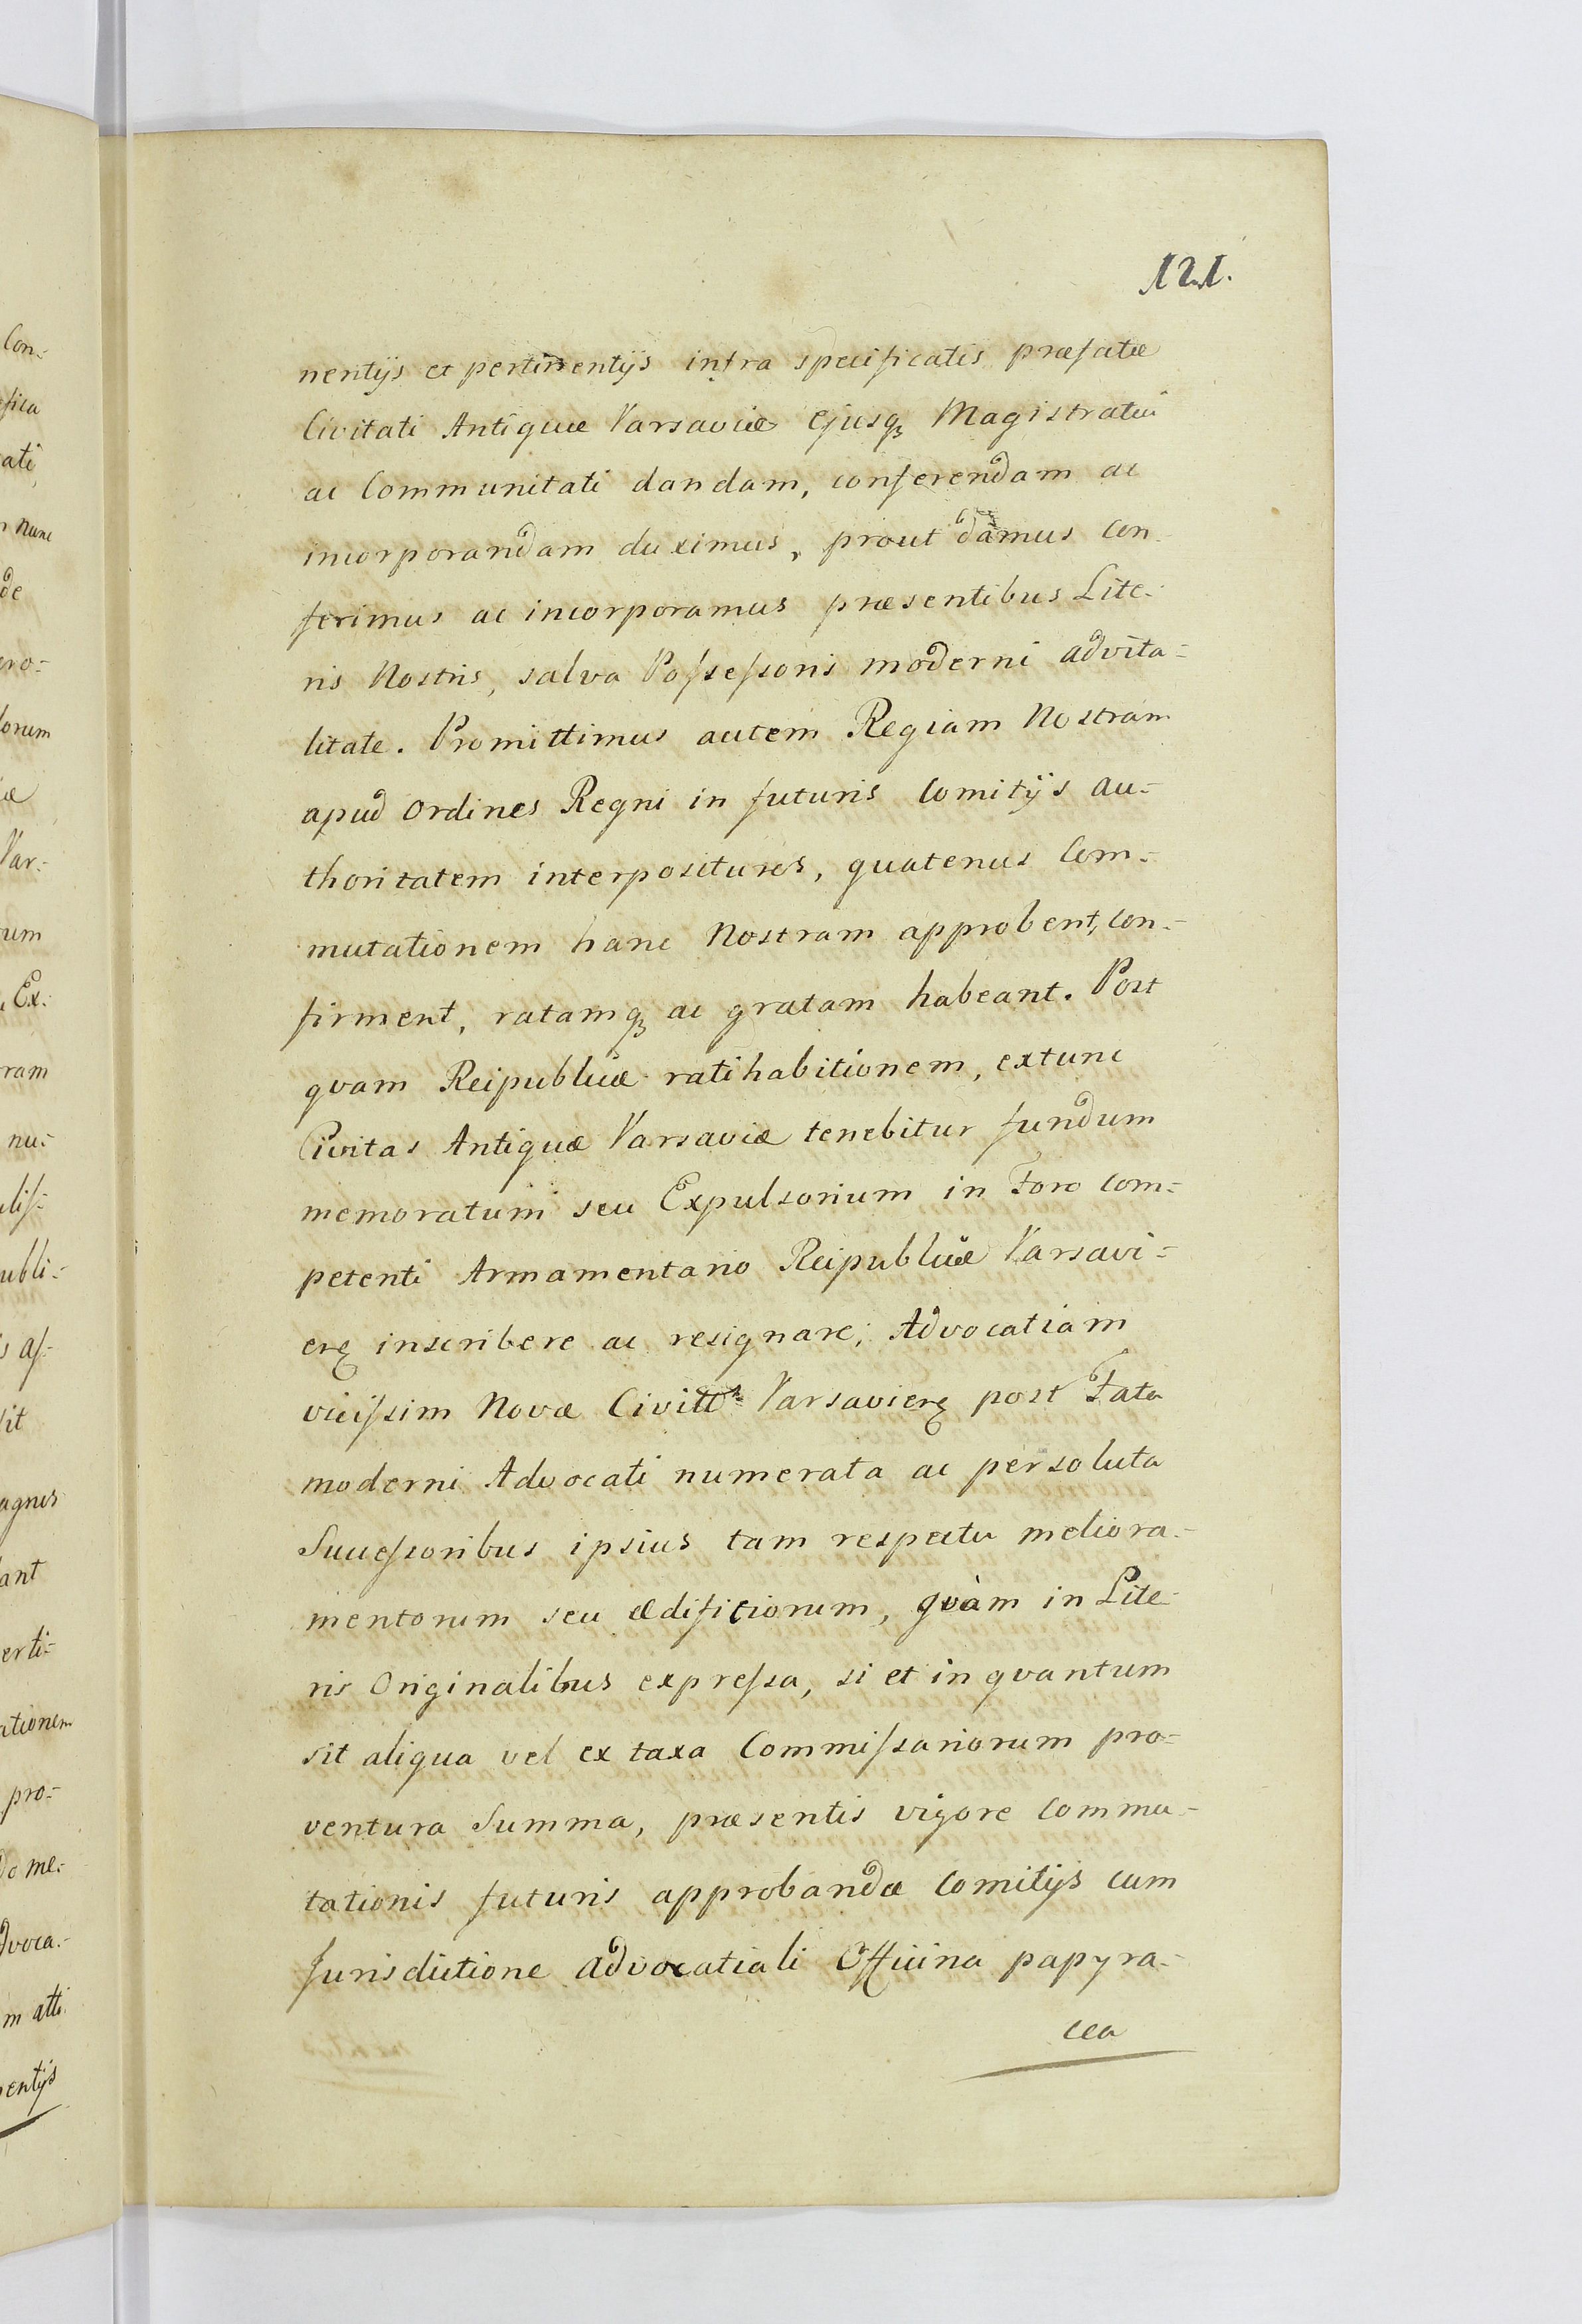 121.
nentijs et pertinentijs infra specificatis præfatæ
Civitati Antiquæ Varsaviæ Ejusq₃ Magistratui
ac Communitati dandam, conferendam ac
incorporandam duximus, prout damus con-
ferimus ac incorporamus præsentibus Lite-
ris Nostris, salva Poſseſsoris moderni advita=
litate. Promittimus autem Regiam Nostram
apud Ordines Regni in futuris Comitijs au=
thoritatem interposituros, quatenus Com=
mutationem hanc Nostram approbent, con=
firment, ratamq₃ ac gratam habeant. Post
qvam Reipublicæ ratihabitionem, extunc
Civitas Antiquæ Varsaviæ tenebitur fundum
memoratum seu Expulsorium in Foro com=
petenti Armamentario Reipublicæ Varsavi=
eñ inscribere ac resignare; Advocatiam
viciſsim Novæ Civittis Varsavieñ post Fata
moderni Advocati numerata ac persoluta
Succeſsoribus ipsius tam respectu meliora-
mentorum seu ædificiorum, qvàm in Lite-
ris Originalibus expreſsa, si et in qvantum
sit aliqua vel ex taxa Commiſsariorum pro=
ventura Summa, præsentis vigore Commu-
tationis futuris approbandæ Comitijs cum
Jurisdictione advocatiali Officina papyra-
cea
Con=
ati
nunc
de
ero=
lorum
Var=
Ex.
ram
nu=
ubli=
aſ=
sit
agnis
ant
erti=
ationem
pro=
me=
dvoca=
m atti
nentijs